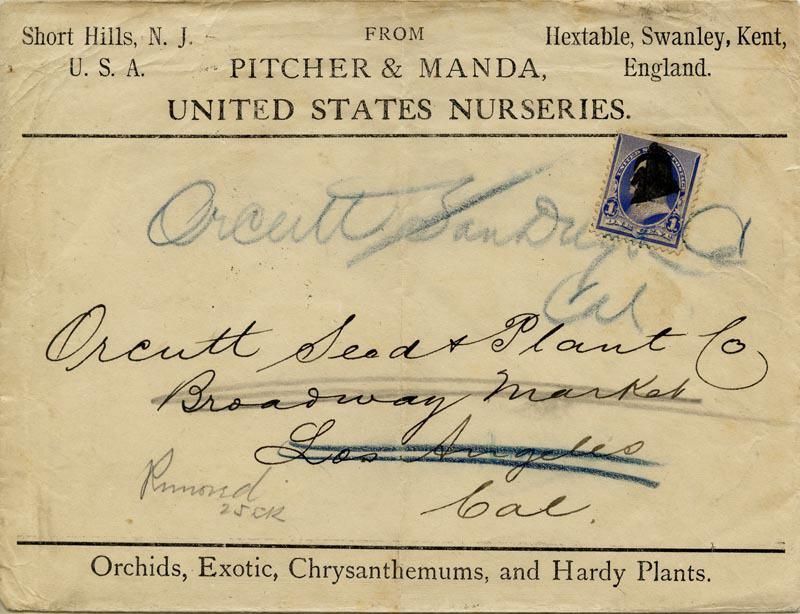 Short Hills, N. J.
U. S. A.
FROM
PITCHER & MANDA,
UNITED STATES NURSERIES.
Hextable, Swanley, Kent,
England.
1 1
ONE CENT
Orcutt San Diego
Cal
Orcutt Seed & Plant Co
Broadway Market
Los Angeles
Cal.
Orchids, Exotic, Chrysanthemums, and Hardy Plants.